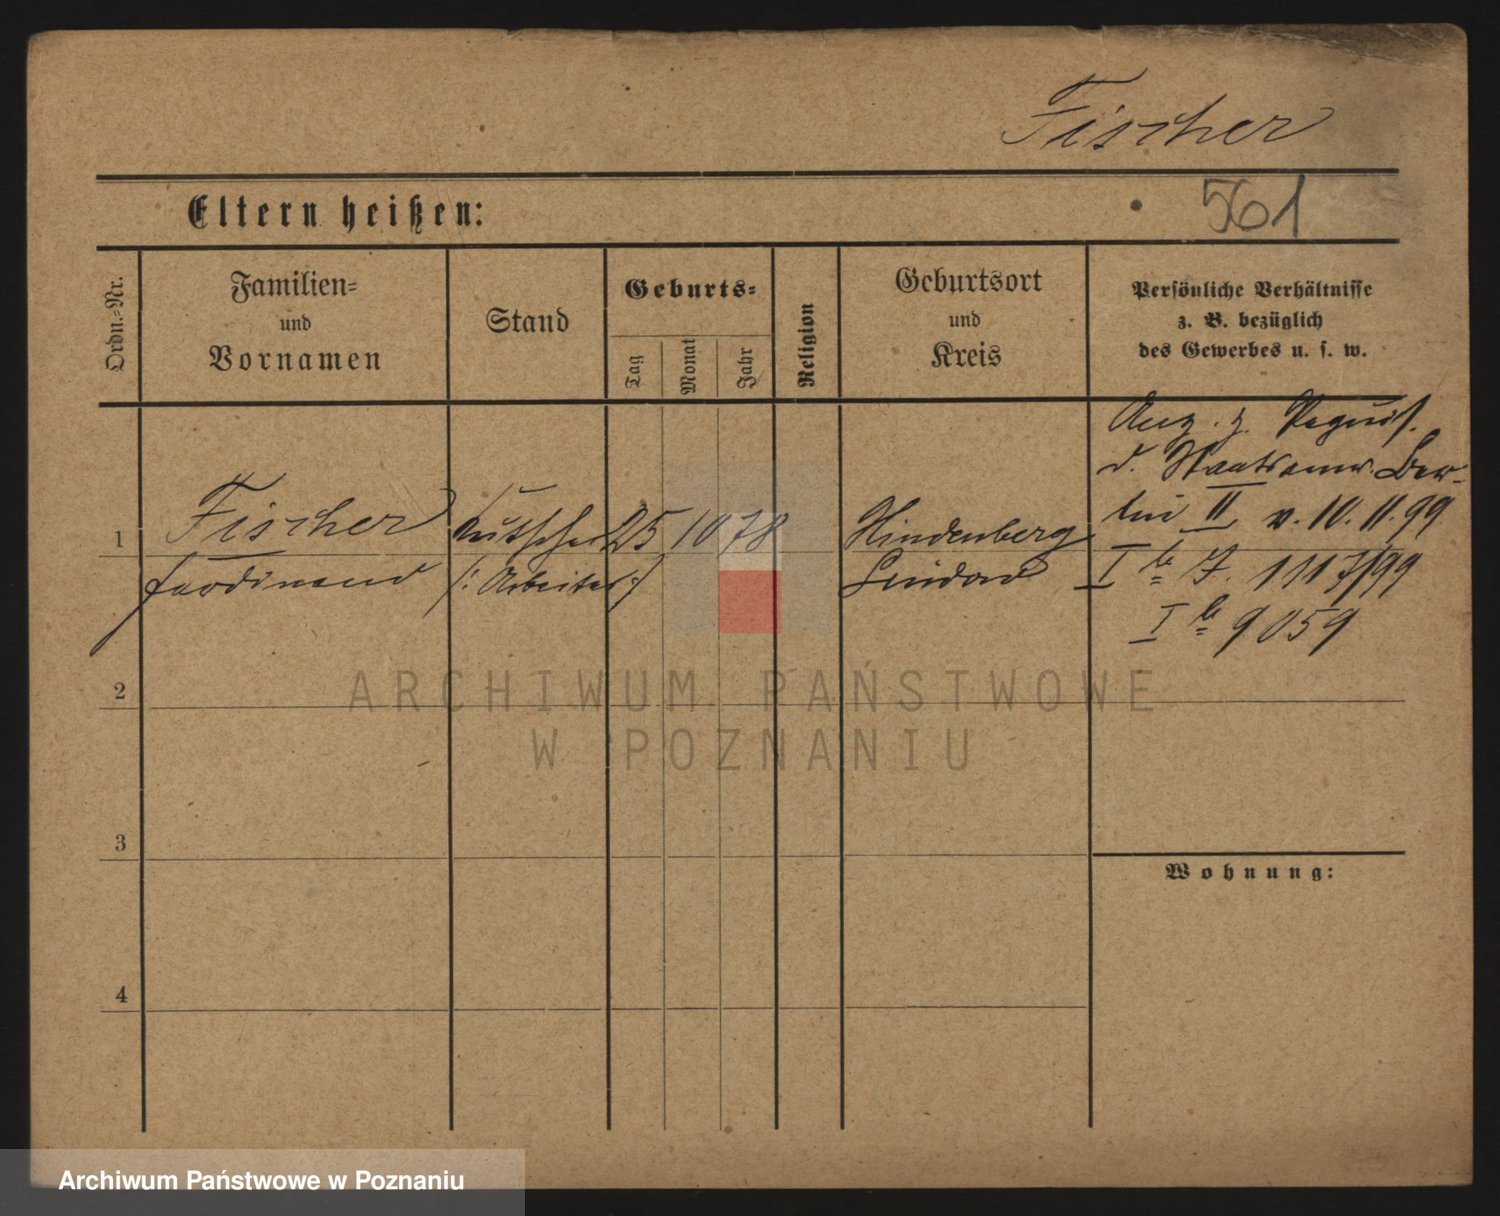 Fischer
Eltern heißen:
561
Ordn.-Nr.
Familien-
und
Vornamen
Stand
Geburts-
Tag
Monat
Jahr
Religion
Geburtsort
und
Kreis
Persönliche Verhältnisse
z. B. bezüglich
des Gewerbes u. s. w.
1
Fischer
Ferdinand
Kutscher
/: Arbeiter :/
25 10 78
Hindenberg
Lindow
Anz. z. Requis.
d. Staatsanw. Ber-
lin II v. 10. 11. 99
I b J. 1117/99
I b 9059
2
3
4
Wohnung:
ARCHIWUM PAŃSTWOWE
W POZNANIU
Archiwum Państwowe w Poznaniu